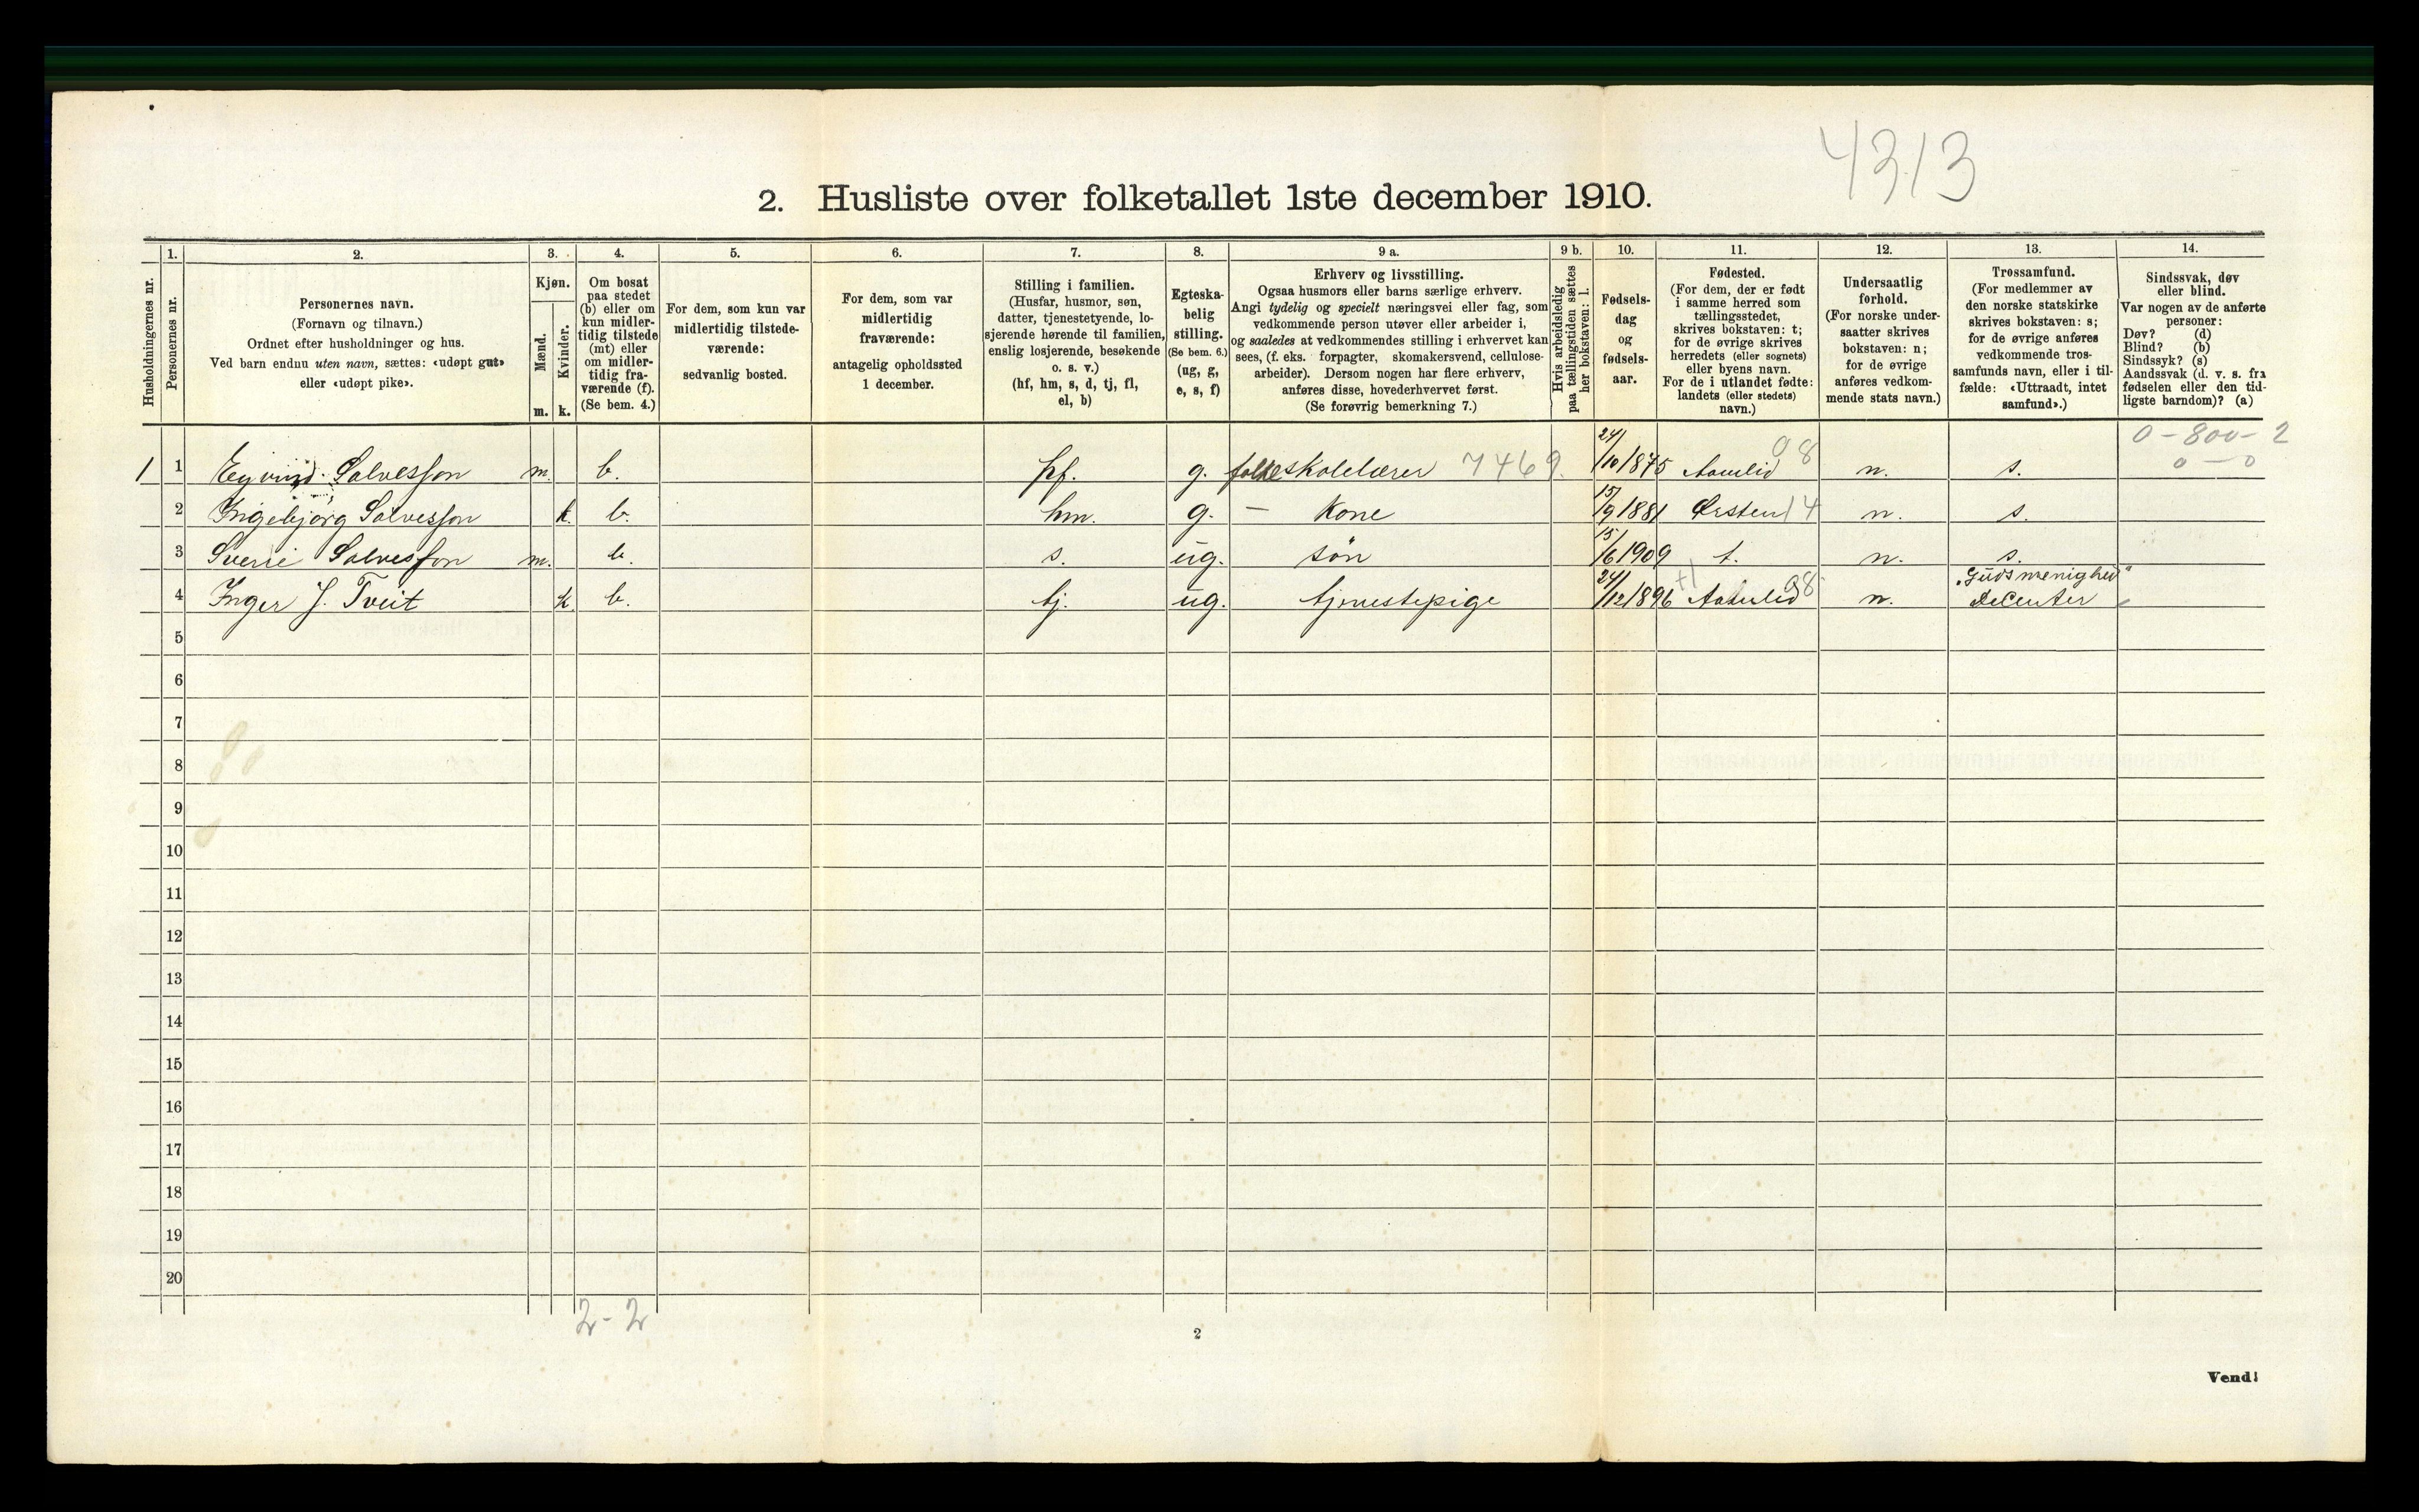 4313
2. Husliste over folketallet 1ste december 1910.
Husholdningernes nr.
1.
Personernes nr.
2.
Personernes navn.
(Fornavn og tilnavn.)
Ordnet efter husholdninger og hus.
Ved barn endnu uten navn, sættes: «udøpt gut»
eller «udøpt pike».
3.
Kjøn.
Mænd.
Kvinder.
m. k.
4.
Om bosat
paa stedet
(b) eller om
kun midler-
tidig tilstede
(mt) eller
om midler-
tidig fra-
værende (f).
(Se bem. 4.)
5.
For dem, som kun var
midlertidig tilstede-
værende:
sedvanlig bosted.
6.
For dem, som var
midlertidig
fraværende:
antagelig opholdssted
1 december.
7.
Stilling i familien.
(Husfar, husmor, søn,
datter, tjenestetyende, lo-
sjerende hørende til familien,
enslig losjerende, besøkende
o. s. v.)
(hf, hm, s, d, tj, fl,
el, b)
8.
Egteska-
belig
stilling.
(Se bem. 6.)
(ug, g,
e, s, f)
9 a.
Erhverv og livsstilling.
Ogsaa husmors eller barns særlige erhverv.
Angi tydelig og specielt næringsvei eller fag, som
vedkommende person utøver eller arbeider i,
og saaledes at vedkommendes stilling i erhvervet kan
sees, (f. eks. forpagter, skomakersvend, cellulose-
arbeider). Dersom nogen har flere erhverv,
anføres disse, hovederhvervet først.
(Se forøvrig bemerkning 7.)
9 b.
Hvis arbeidsledig
paa tællingstiden sættes
her bokstaven: l.
10.
Fødsels-
dag
og
fødsels-
aar.
11.
Fødested.
(For dem, der er født
i samme herred som
tællingsstedet,
skrives bokstaven: t;
for de øvrige skrives
herredets (eller sognets)
eller byens navn.
For de i utlandet fødte:
landets (eller stedets)
navn.)
12.
Undersaatlig
forhold.
(For norske under-
saatter skrives
bokstaven: n;
for de øvrige
anføres vedkom-
mende stats navn.)
13.
Trossamfund.
(For medlemmer av
den norske statskirke
skrives bokstaven: s;
for de øvrige anføres
vedkommende tros-
samfunds navn, eller i til-
fælde: «Uttraadt, intet
samfund».)
14.
Sindssvak, døv
eller blind.
Var nogen av de anførte
personer:
Døv? (d)
Blind? (b)
Sindssyk? (s)
Aandssvak (d. v. s. fra
fødselen eller den tid-
ligste barndom)? (a)
0-800-2
0-0
1 1 Eyvind Salvesson m. b. hf. g. folkeskolelærer 7469. 24/10 1875 Aamlid 98 n. s.
2 Ingebjørg Salvesson k. b. hm. g. - Kone 15/9 1881 Ørsten 14 n. s.
3 Sverre Salvesson m. b. s. ug. søn 15/6 1909 t. n. s.
4 Inger J. Tveit k. b. tj. ug. tjenestepige 24/12 1896 Aamlid 98 n. "Gudsmenighed" decenter
5
6
7
8
9
10
11
12
13
14
15
16
17
18
19
20
2-2
2
Vend!